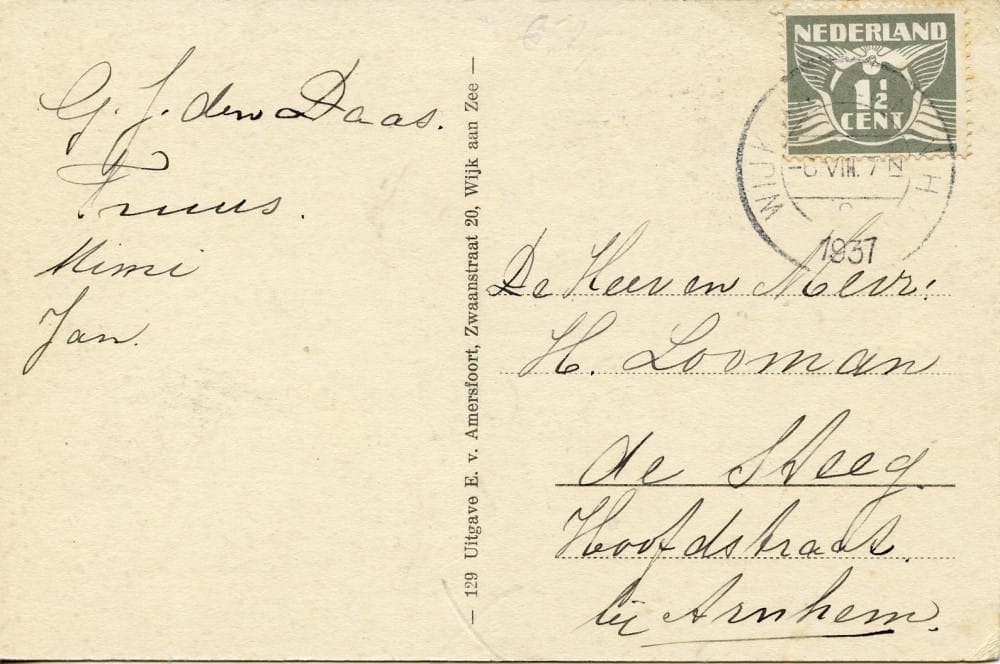 G. J. den Daas.
Truus.
Mimi
Jan.
— 129 Uitgave E. v. Amersfoort, Zwaanstraat 20, Wijk aan Zee —
NEDERLAND
1½
CENT
WIJK
VIII. 7 N
1937
De Heer en Mevr:
H. Looman
de Steeg.
Hoofdstraat.
bij Arnhem.